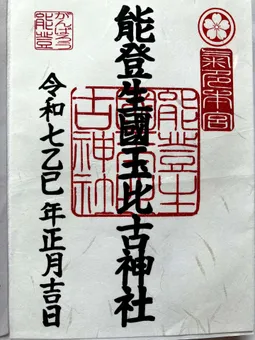 氣多本宮
能登生國玉比古神社
能登生
古神社
がんばろう
能登
令和七乙巳年正月吉日